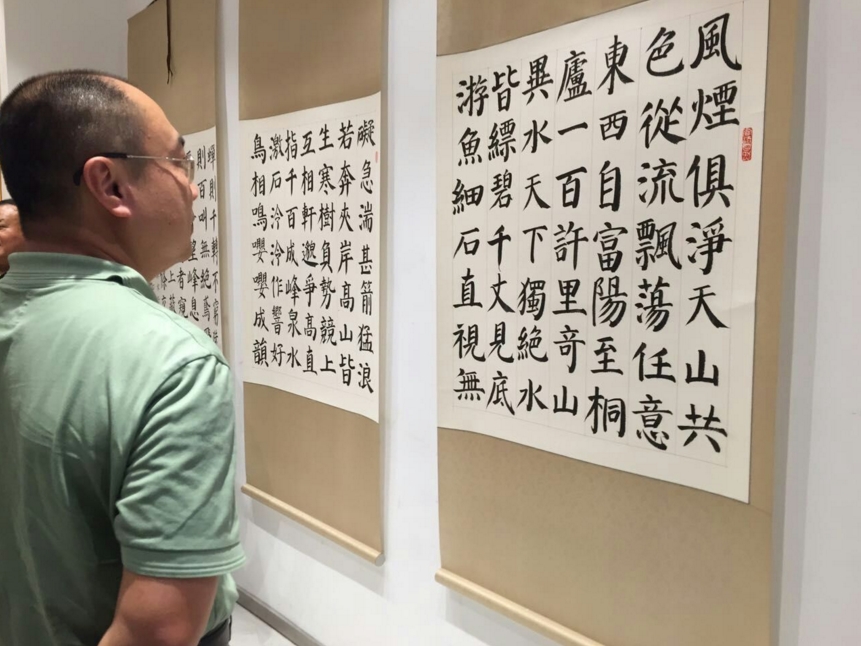 風煙俱淨天山共
色從流飄蕩任意
東西自富陽至桐
廬一百許里奇山
異水天下獨絕水
皆縹碧千丈見底
游魚細石直視無
礙急湍甚箭猛浪
若奔夾岸高山皆
生寒樹負勢競上
互相軒邈爭高直
指千百成峰泉水
激石泠泠作響好
鳥相鳴嚶嚶成韻
蟬則千轉不窮
則百叫無絕鳶
望峰息
者窺